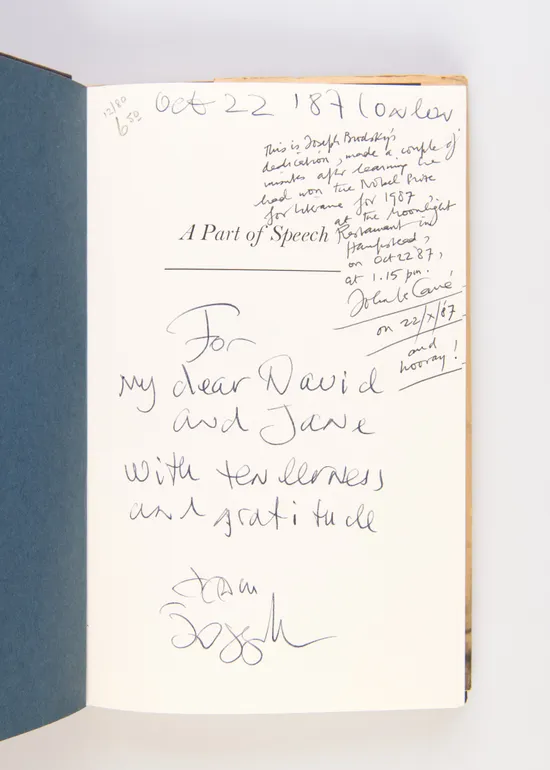 12/80
6.50
Oct 22 '87 London
This is Joseph Brodsky's
dedication, made a couple of
minutes after learning he
had won the Nobel Prize
for literature for 1987,
at the Moonlight
Restaurant in
Hampstead,
on Oct 22 87,
at 1.15 pm.
John le Carré
on 22/X/87
and
hooray!
A Part of Speech
For
my dear David
and Jane
with tenderness
and gratitude
from
Joseph